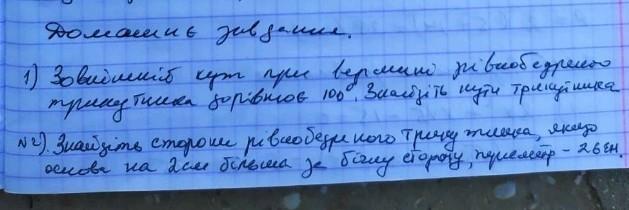 Домашнє завдання.
1) Зовнішній кут при вершині рівнобедреного
трикутника дорівнює 100°. Знайдіть кути трикутника
№2). Знайдіть сторони рівнобедреного трикутника, якщо
основа на 2см більша за бічну сторону, периметр - 26см.